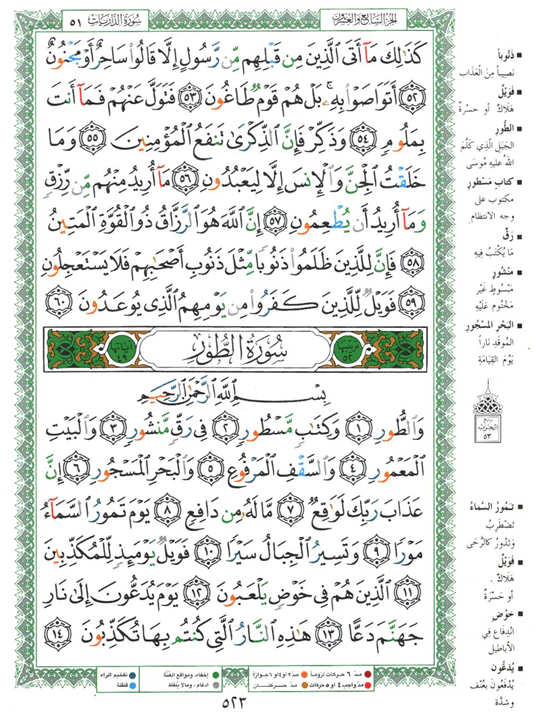 الجزء السابع والعشرون
سورة الذاريات ٥١
كَذَٰلِكَ مَآ أَتَى ٱلَّذِينَ مِن قَبۡلِهِم مِّن رَّسُولٍ إِلَّا قَالُواْ سَاحِرٌ أَوۡ مَجۡنُونٌ
٥٢ أَتَوَاصَوۡاْ بِهِۦۚ بَلۡ هُمۡ قَوۡمٞ طَاغُونَ ٥٣ فَتَوَلَّ عَنۡهُمۡ فَمَآ أَنتَ
بِمَلُومٖ ٥٤ وَذَكِّرۡ فَإِنَّ ٱلذِّكۡرَىٰ تَنفَعُ ٱلۡمُؤۡمِنِينَ ٥٥ وَمَا
خَلَقۡتُ ٱلۡجِنَّ وَٱلۡإِنسَ إِلَّا لِيَعۡبُدُونِ ٥٦ مَآ أُرِيدُ مِنۡهُم مِّن رِّزۡقٖ
وَمَآ أُرِيدُ أَن يُطۡعِمُونِ ٥٧ إِنَّ ٱللَّهَ هُوَ ٱلرَّزَّاقُ ذُو ٱلۡقُوَّةِ ٱلۡمَتِينُ
٥٨ فَإِنَّ لِلَّذِينَ ظَلَمُواْ ذَنُوبٗا مِّثۡلَ ذَنُوبِ أَصۡحَٰبِهِمۡ فَلَا يَسۡتَعۡجِلُونِ
٥٩ فَوَيۡلٞ لِّلَّذِينَ كَفَرُواْ مِن يَوۡمِهِمُ ٱلَّذِي يُوعَدُونَ ٦٠
سُورَةُ الطُّورِ
آياتها ٤٩
بِسۡمِ ٱللَّهِ ٱلرَّحۡمَٰنِ ٱلرَّحِيمِ
وَٱلطُّورِ ١ وَكِتَٰبٖ مَّسۡطُورٖ ٢ فِي رَقّٖ مَّنشُورٖ ٣ وَٱلۡبَيۡتِ
ٱلۡمَعۡمُورِ ٤ وَٱلسَّقۡفِ ٱلۡمَرۡفُوعِ ٥ وَٱلۡبَحۡرِ ٱلۡمَسۡجُورِ ٦ إِنَّ
عَذَابَ رَبِّكَ لَوَٰقِعٞ ٧ مَّا لَهُۥ مِن دَافِعٖ ٨ يَوۡمَ تَمُورُ ٱلسَّمَآءُ
مَوۡرٗا ٩ وَتَسِيرُ ٱلۡجِبَالُ سَيۡرٗا ١٠ فَوَيۡلٞ يَوۡمَئِذٖ لِّلۡمُكَذِّبِينَ
١١ ٱلَّذِينَ هُمۡ فِي خَوۡضٖ يَلۡعَبُونَ ١٢ يَوۡمَ يُدَعُّونَ إِلَىٰ نَارِ
جَهَنَّمَ دَعًّا ١٣ هَٰذِهِ ٱلنَّارُ ٱلَّتِي كُنتُم بِهَا تُكَذِّبُونَ ١٤
■ ذَنُوباً
نَصيباً مِنَ الْعَذَابِ
■ فَوَيْلٌ
هَلَاكٌ أو حَسْرَةٌ
■ الطُّورِ
الجَبَلِ الَّذِي كَلَّمَ
اللهُ عَلَيهِ مُوسَى
■ كتابٍ مَسْطُورٍ
مكتوبٍ على
وجه الانتظام
■ رَقٍّ
مَا يُكْتَبُ فِيهِ
■ مَنْشُورٍ
مَبْسُوطٍ غَيْرِ
مَخْتُومٍ عَلَيْهِ
■ البَحْرِ المَسْجُورِ
المُوقَدِ ناراً
يَوْمَ القِيَامَةِ
الحزب
٥٣
■ تَمُورُ السَّماءُ
تَضْطَرِبُ
وَتَدُورُ كالرَّحَى
■ فَوَيْلٌ
هَلَاكٌ
أو حَسْرَةٌ
■ خَوْضٍ
انْدِفَاعٍ في
الأباطيل
■ يُدَعُّونَ
يُدْفَعُونَ بِعُنْفٍ
وشدَّة
مدّ ٦ حركات لزوماً ● مدّ ٢ أو ٤ أو ٦ جوازاً ● إخفاء، ومواقع الغنّة ● تفخيم الراء
مدّ واجب ٤ أو ٥ حركات ● مدّ حركتان ● ادغام، وما لا يُلفظ ● قلقلة
٥٢٣